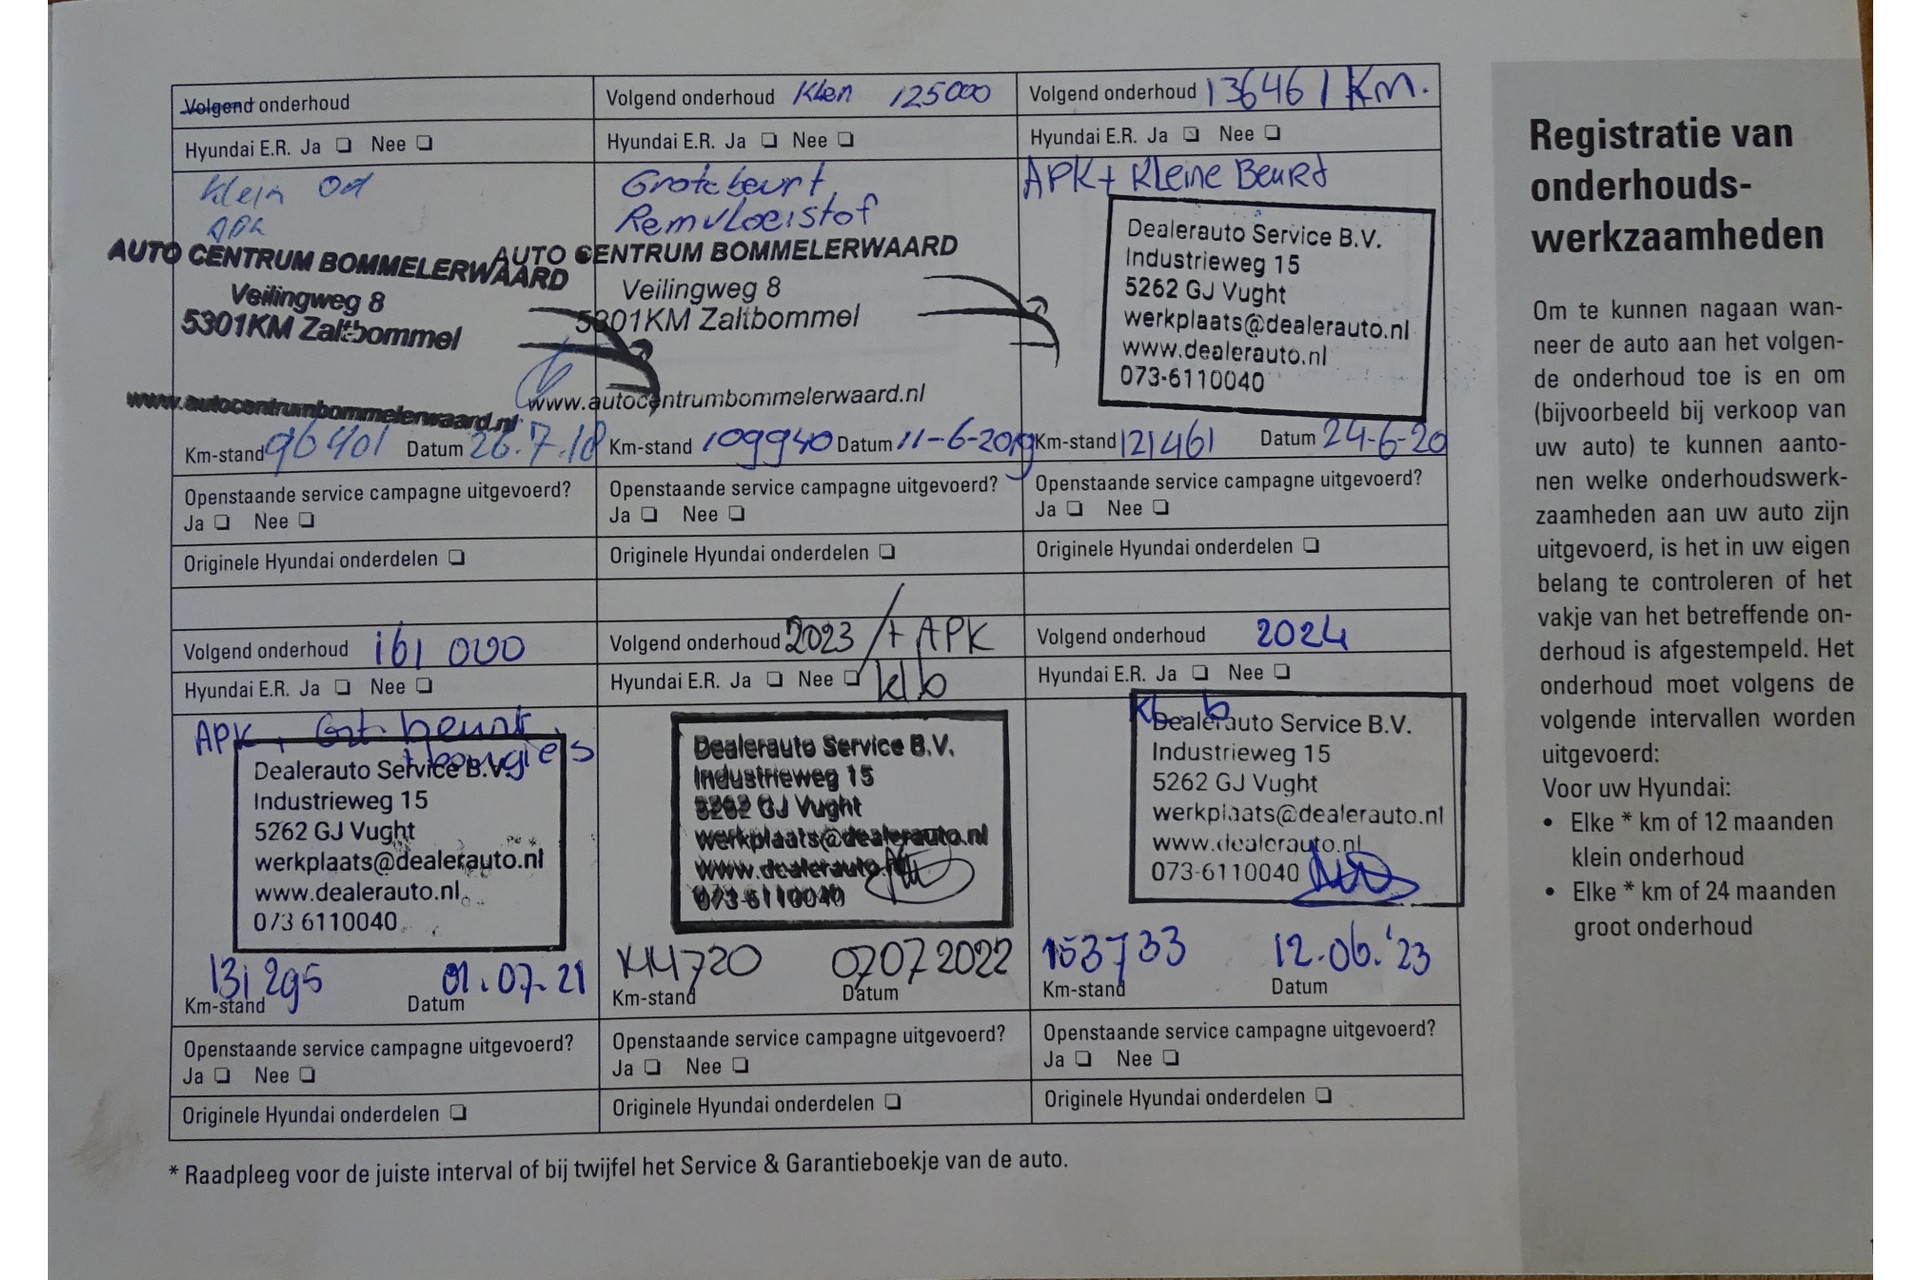 Volgend onderhoud
Hyundai E.R. Ja ❏ Nee ❏
Klein Ond
APK
AUTO CENTRUM BOMMELERWAARD
Veilingweg 8
5301KM Zaltbommel
www.autocentrumbommelerwaard.nl
Km-stand 96401 Datum 26.7.18
Openstaande service campagne uitgevoerd?
Ja ❏ Nee ❏
Originele Hyundai onderdelen ❏
Volgend onderhoud Klein 125000
Hyundai E.R. Ja ❏ Nee ❏
Grote beurt
Remvloeistof
AUTO CENTRUM BOMMELERWAARD
Veilingweg 8
5301KM Zaltbommel
www.autocentrumbommelerwaard.nl
Km-stand 109940 Datum 11-6-2019
Openstaande service campagne uitgevoerd?
Ja ❏ Nee ❏
Originele Hyundai onderdelen ❏
Volgend onderhoud 136461 Km.
Hyundai E.R. Ja ❏ Nee ❏
APK + Kleine Beurt
Dealerauto Service B.V.
Industrieweg 15
5262 GJ Vught
werkplaats@dealerauto.nl
www.dealerauto.nl
073-6110040
Km-stand 121461 Datum 24-6-20
Openstaande service campagne uitgevoerd?
Ja ❏ Nee ❏
Originele Hyundai onderdelen ❏
Volgend onderhoud 161 000
Hyundai E.R. Ja ❏ Nee ❏
APK + Grt. beurt
+ bougies
Dealerauto Service B.V.
Industrieweg 15
5262 GJ Vught
werkplaats@dealerauto.nl
www.dealerauto.nl
073 6110040
131295 01.07.21
Km-stand Datum
Openstaande service campagne uitgevoerd?
Ja ❏ Nee ❏
Originele Hyundai onderdelen ❏
Volgend onderhoud 2023 / + APK
Hyundai E.R. Ja ❏ Nee ❏ klb
Dealerauto Service B.V.
Industrieweg 15
5262 GJ Vught
werkplaats@dealerauto.nl
www.dealerauto.nl
073-6110040
144720 07072022
Km-stand Datum
Openstaande service campagne uitgevoerd?
Ja ❏ Nee ❏
Originele Hyundai onderdelen ❏
Volgend onderhoud 2024
Hyundai E.R. Ja ❏ Nee ❏
Kl. b
Dealerauto Service B.V.
Industrieweg 15
5262 GJ Vught
werkplaats@dealerauto.nl
www.dealerauto.nl
073-6110040
153733 12.06.'23
Km-stand Datum
Openstaande service campagne uitgevoerd?
Ja ❏ Nee ❏
Originele Hyundai onderdelen ❏
* Raadpleeg voor de juiste interval of bij twijfel het Service & Garantieboekje van de auto.
Registratie van
onderhouds-
werkzaamheden
Om te kunnen nagaan wan-
neer de auto aan het volgen-
de onderhoud toe is en om
(bijvoorbeeld bij verkoop van
uw auto) te kunnen aanto-
nen welke onderhoudswerk-
zaamheden aan uw auto zijn
uitgevoerd, is het in uw eigen
belang te controleren of het
vakje van het betreffende on-
derhoud is afgestempeld. Het
onderhoud moet volgens de
volgende intervallen worden
uitgevoerd:
Voor uw Hyundai:
• Elke * km of 12 maanden
klein onderhoud
• Elke * km of 24 maanden
groot onderhoud